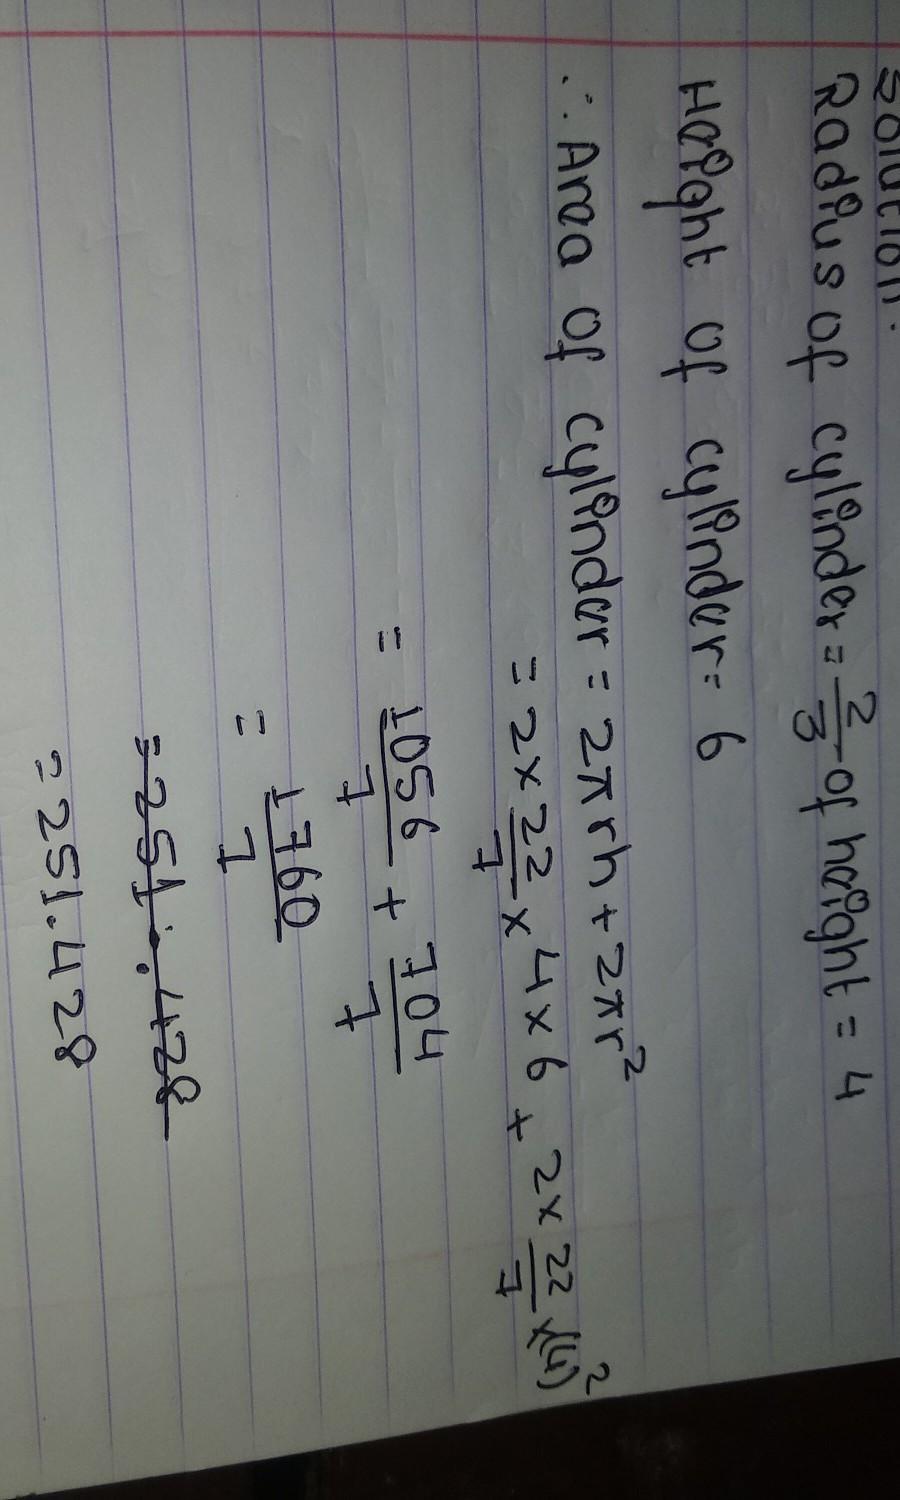 Solution:
Radius of cylinder = 2/3 of height = 4
Height of cylinder = 6
∴ Area of cylinder = 2πrh + 2πr²
= 2 x 22/7 x 4 x 6 + 2 x 22/7 x (4)²
= 1056/7 + 704/7
= 1760/7
= 251.428
= 251.428